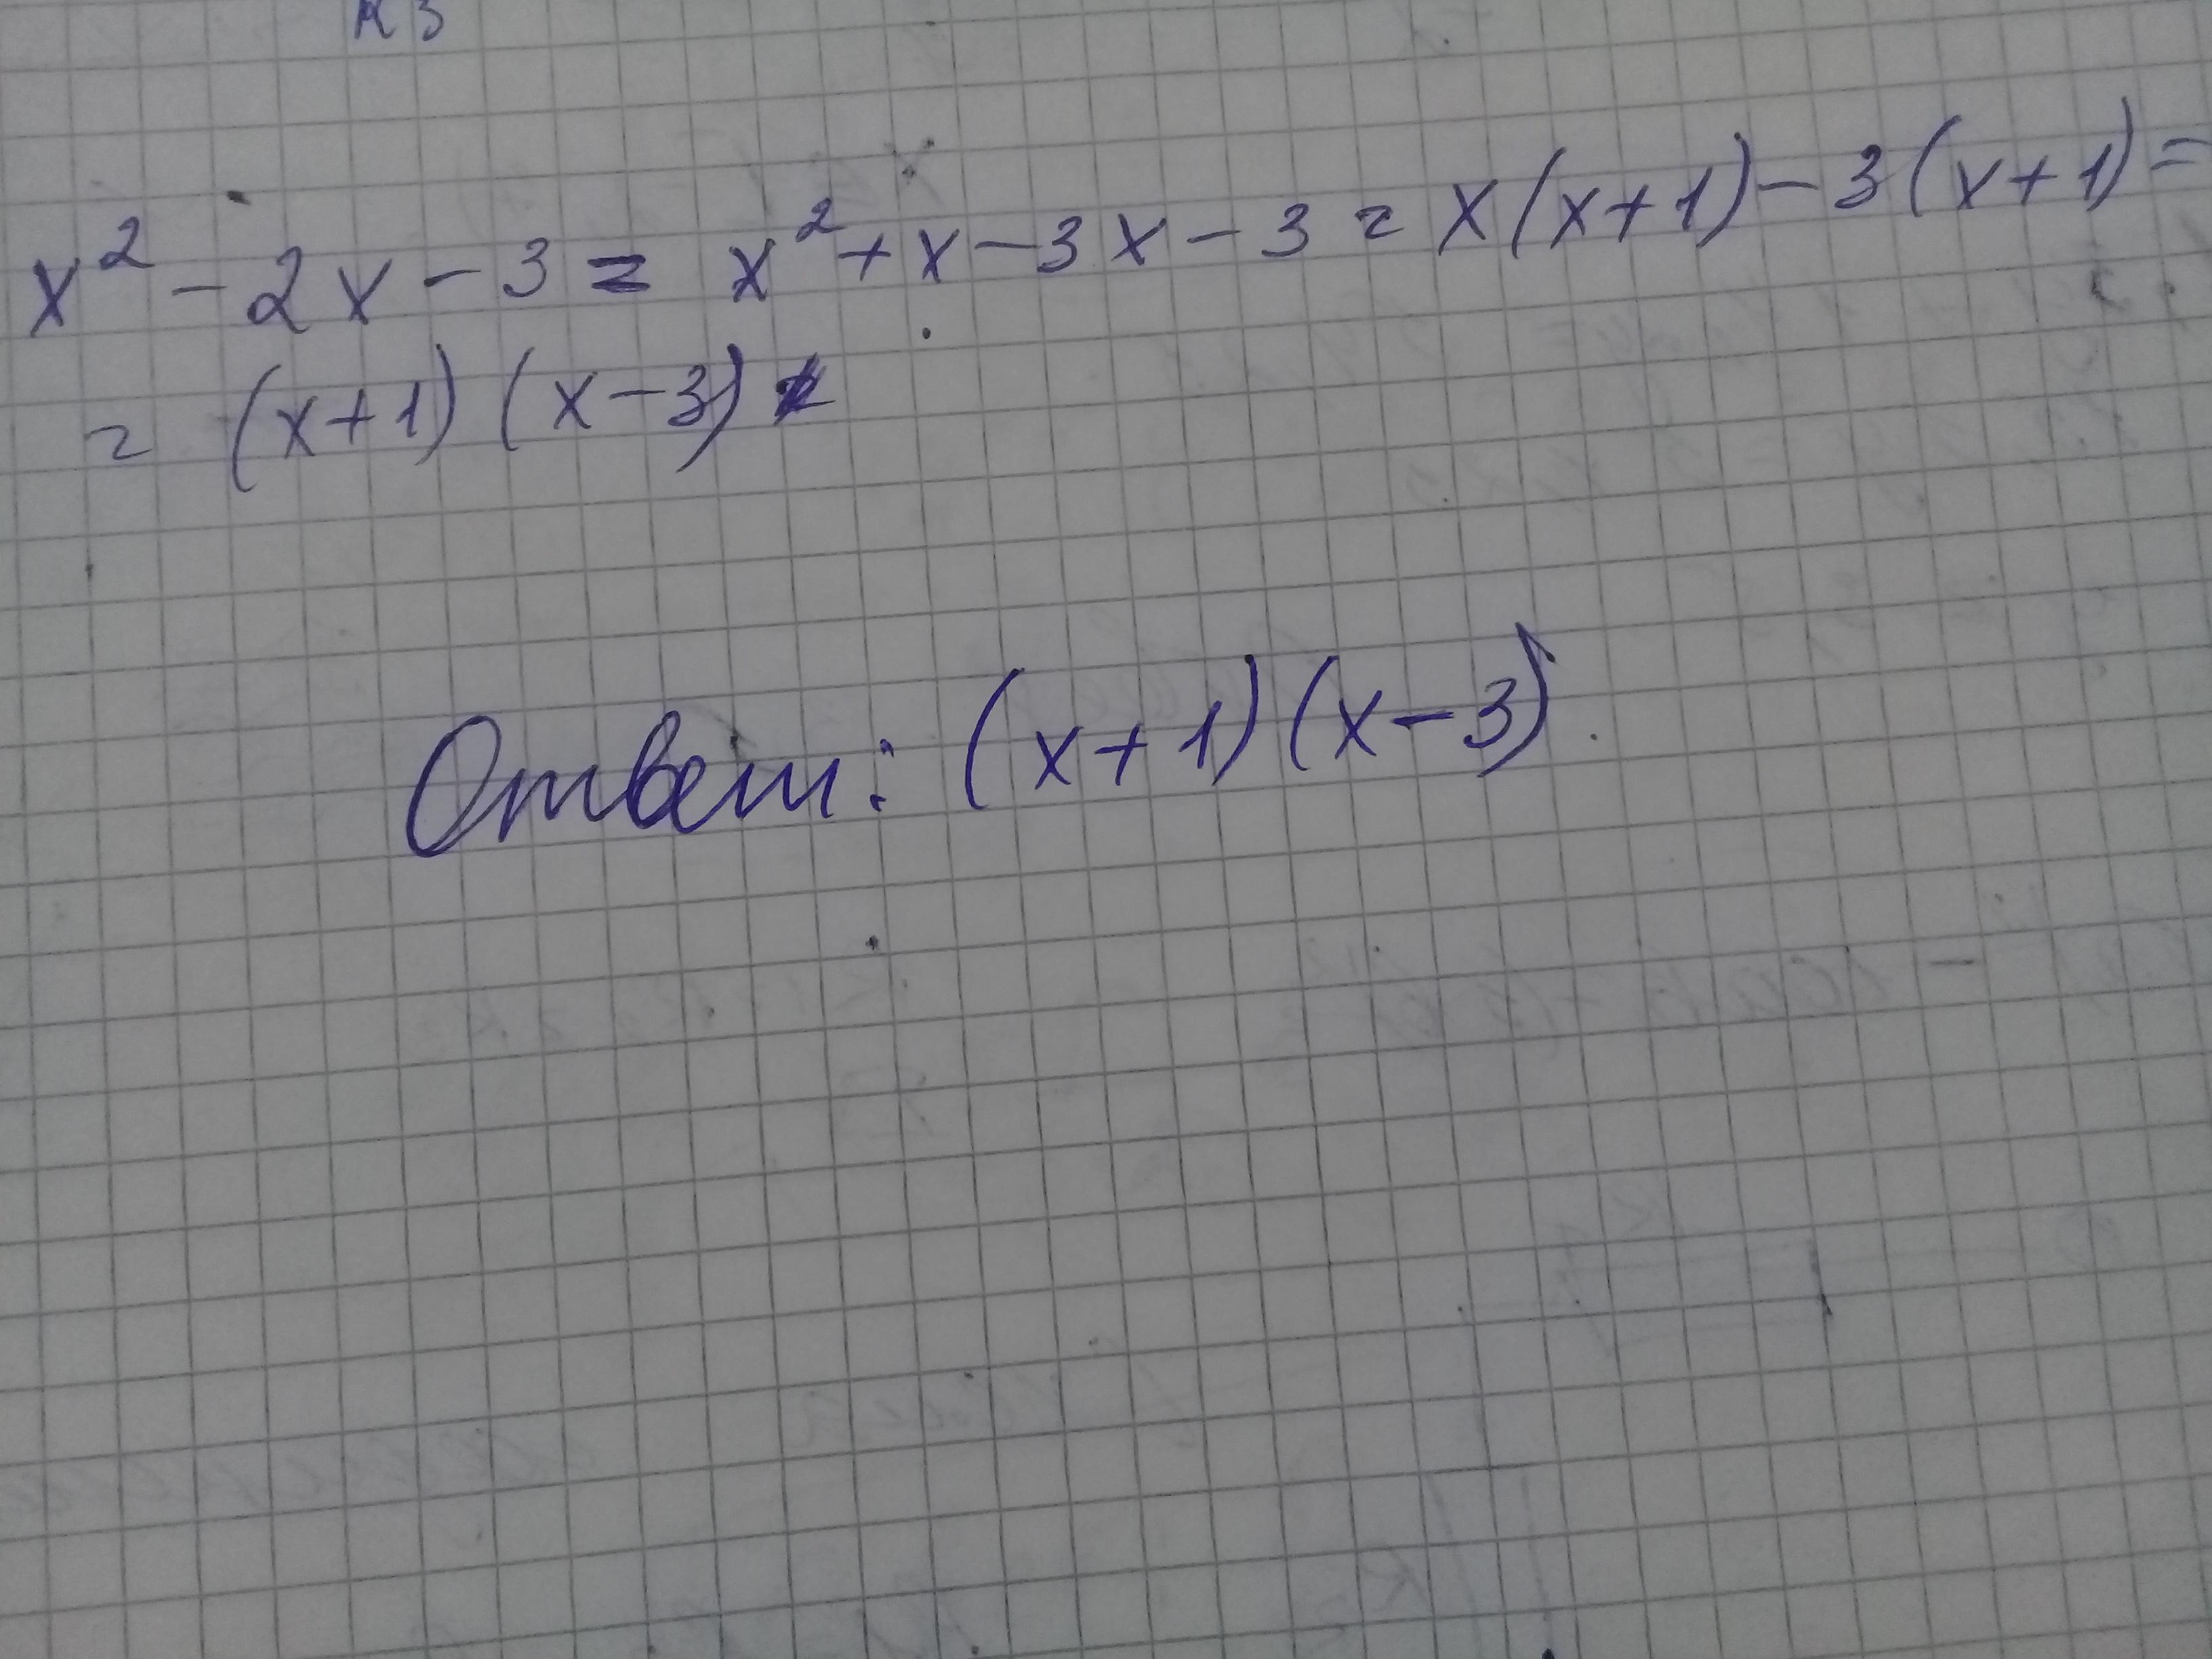 x² - 2x - 3 = x² + x - 3x - 3 = x(x+1) - 3(x+1) =
= (x+1)(x-3)
Ответ: (x+1)(x-3).